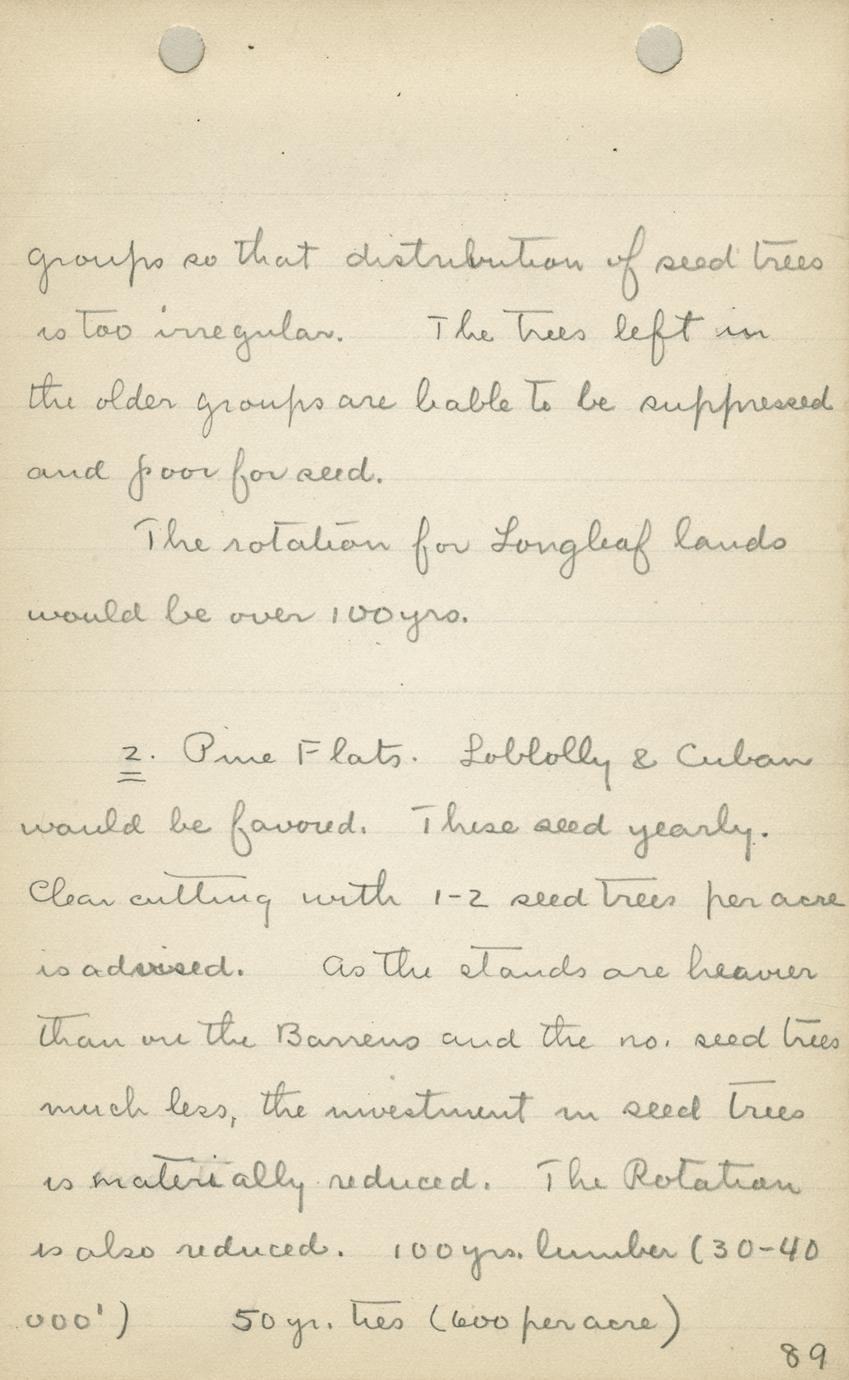 groups so that distribution of seed trees
is too irregular. The trees left in
the older groups are liable to be suppressed
and poor for seed.
The rotation for Longleaf lands
would be over 100 yrs.
2. Pine Flats. Loblolly & Cuban
would be favored. These seed yearly.
Clear cutting with 1-2 seed trees per acre
is advised. As the stands are heavier
than on the Barrens and the no. seed trees
much less, the investment in seed trees
is materially reduced. The Rotation
is also reduced. 100 yrs. lumber (30-40
000')  50 yr. ties (600 per acre)
89